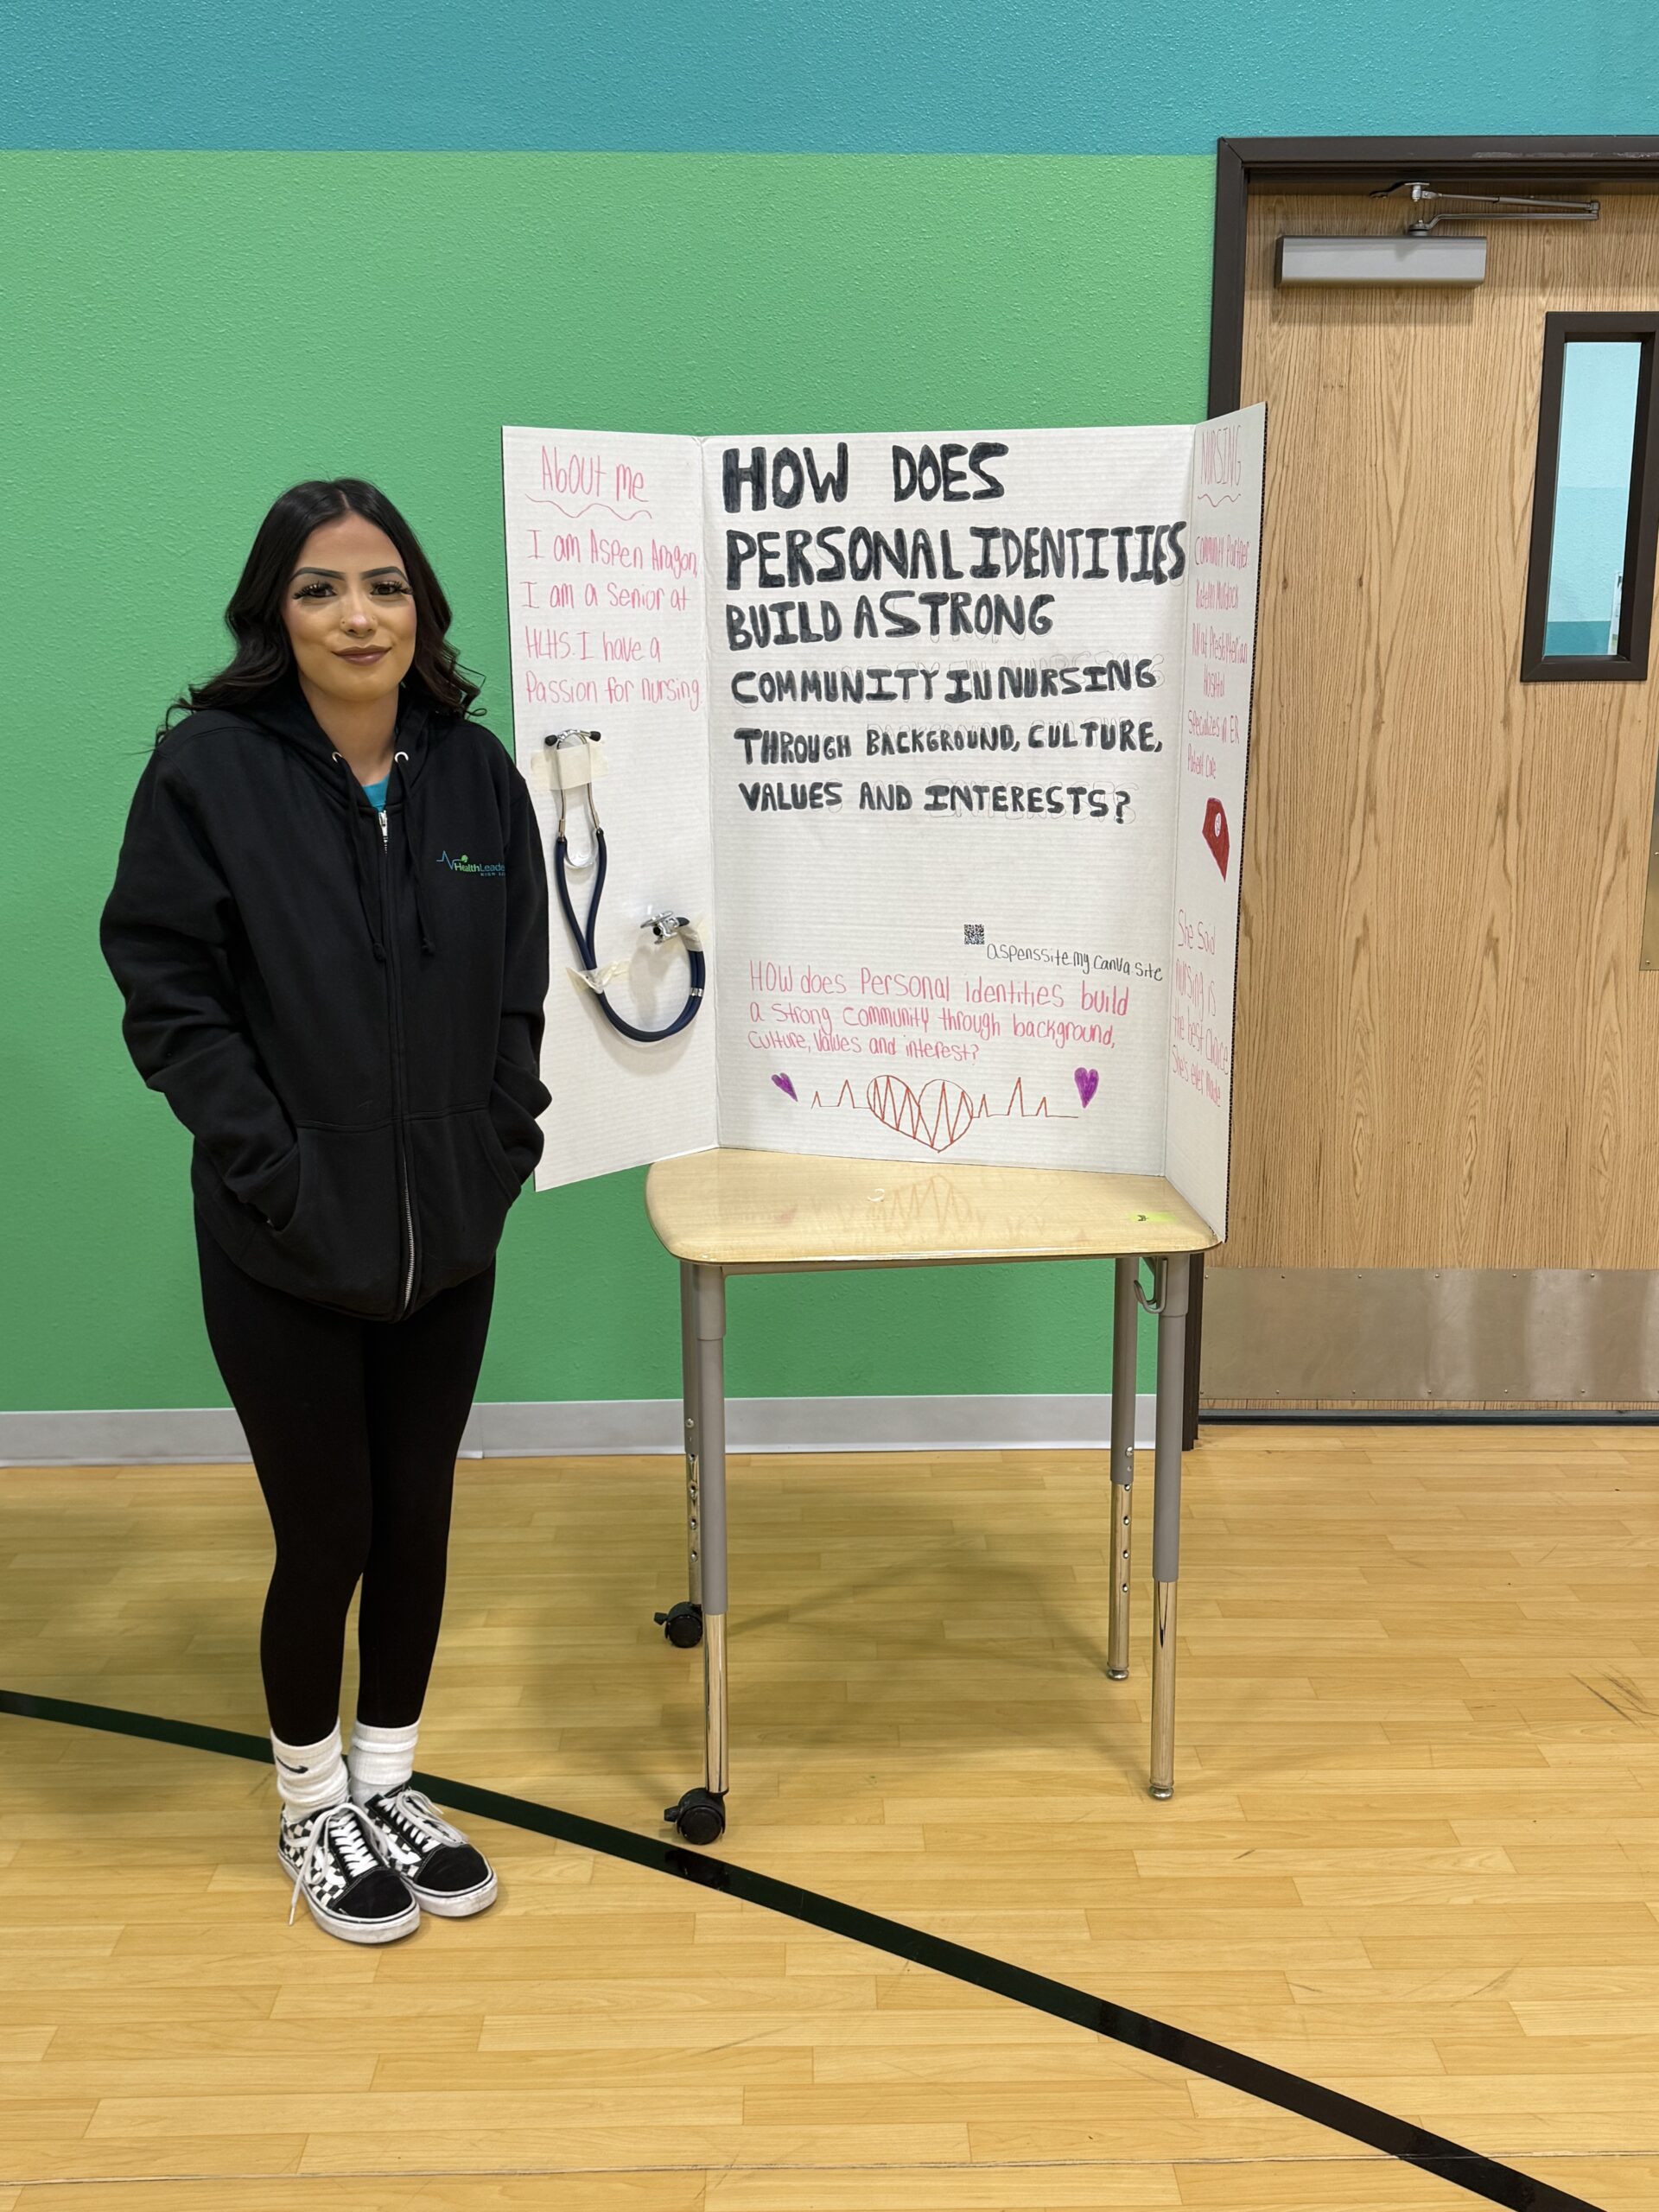 About me
I am Aspen Aragon,
I am a Senior at
HLHS. I have a
Passion for nursing
HOW DOES
PERSONAL IDENTITIES
BUILD A STRONG
COMMUNITY IN NURSING
THROUGH BACKGROUND, CULTURE,
VALUES AND INTERESTS?
aspenssite.my canva site
How does Personal identities build
a strong community through background,
culture, values and interest?
NURSING
Community Partner
RN at Presbyterian
Hospital
Specializes in ER
Patient Care
She said
nursing is
the best choice
She's ever made
HealthLeade
HIGH SC